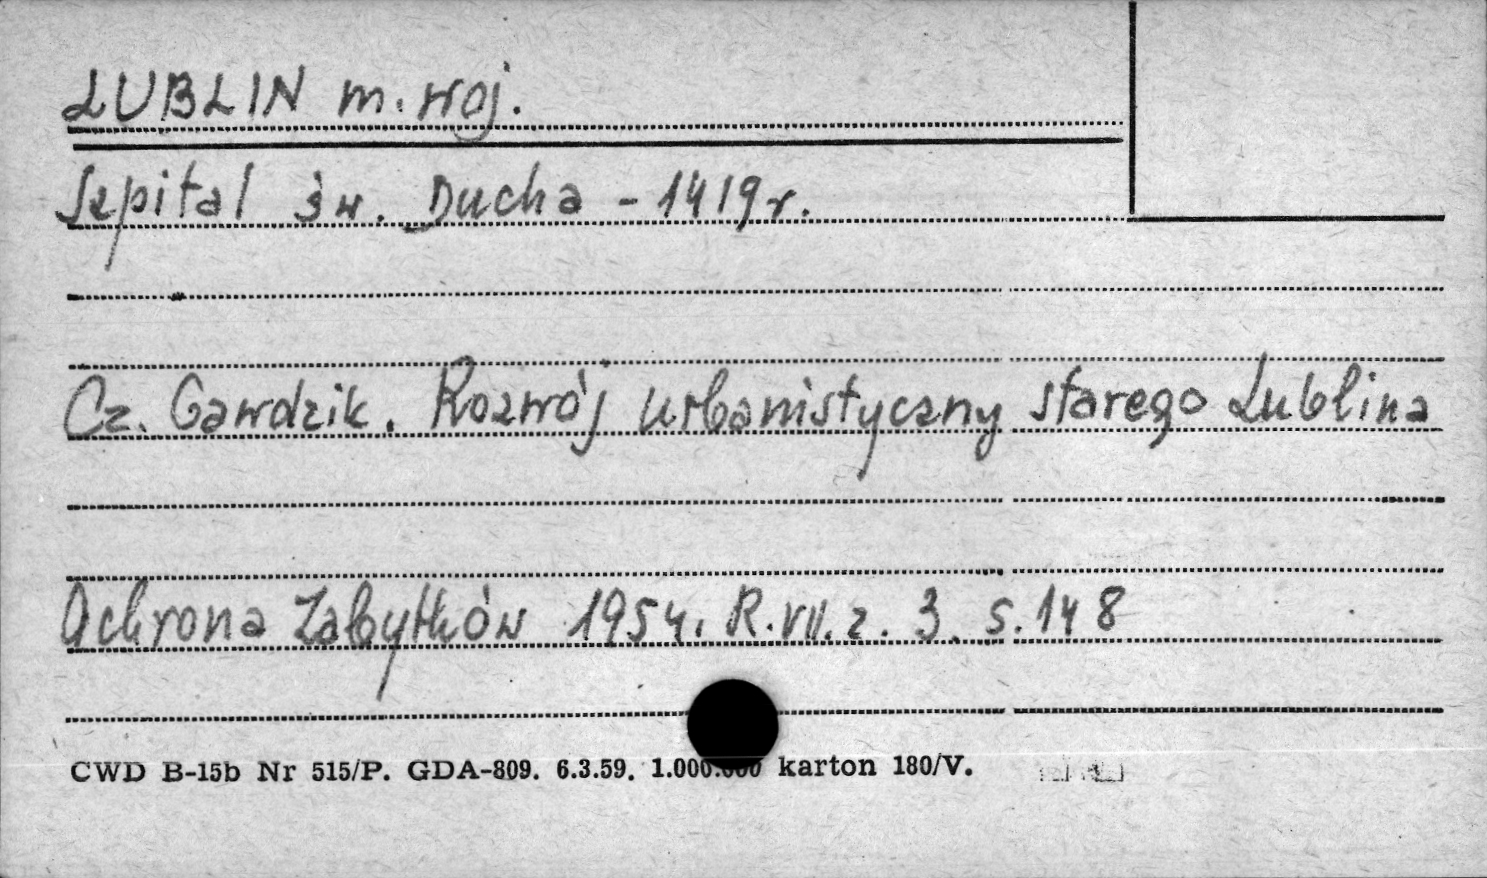 LUBLIN m. woj.
Szpital św. Ducha - 1419 r.
Cz. Gawdzik. Rozwój urbanistyczny starego Lublina
Ochrona Zabytków 1954. R. VII. z. 3. s. 148
CWD B-15b Nr 515/P. GDA-809. 6.3.59. 1.000.000 karton 180/V.